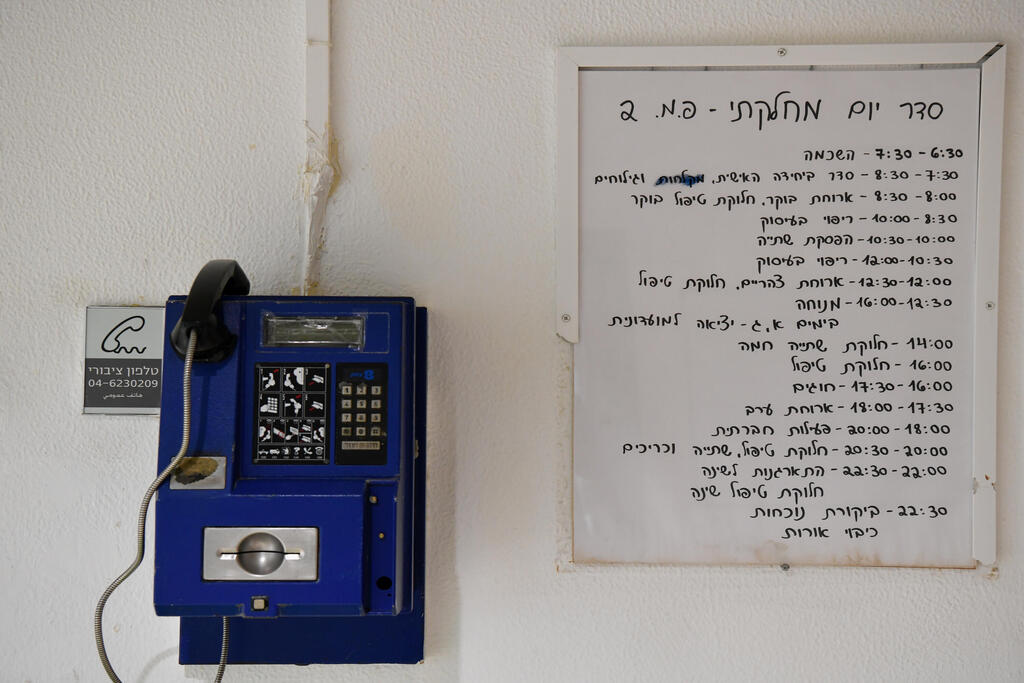 טלפון ציבורי
04-6230209
هاتف عمومي
סדר יום מחלקתי - פ.מ. 2
6:30 - 7:30 - השכמה
7:30 - 8:30 - סדר ביחידה האישית, מקלחות וגילוחים
8:00 - 8:30 - ארוחת בוקר, חלוקת טיפול בוקר
8:30 - 10:00 - ריפוי בעיסוק
10:00 - 10:30 - הפסקת שתייה
10:30 - 12:00 - ריפוי בעיסוק
12:00 - 12:30 - ארוחת צהריים, חלוקת טיפול
12:30 - 16:00 - מנוחה
בימים א,ג - יציאה למועדונית
14:00 - חלוקת שתייה חמה
16:00 - חלוקת טיפול
16:00 - 17:30 - חוגים
17:30 - 18:00 - ארוחת ערב
18:00 - 20:00 - פעילות חברתית
20:00 - 20:30 - חלוקת טיפול, שתייה וכריכים
22:00 - 22:30 - התארגנות לשינה
חלוקת טיפול שינה
22:30 - ביקורת נוכחות
כיבוי אורות